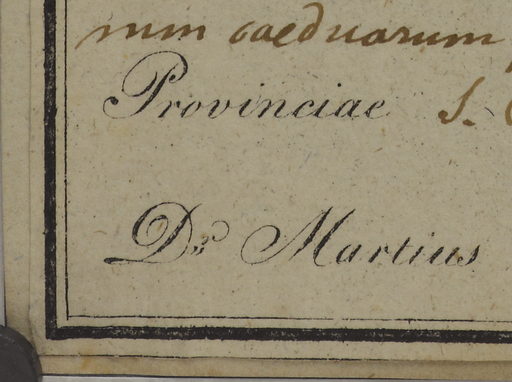 num caeduarum
Provinciae S.
Dr Martius